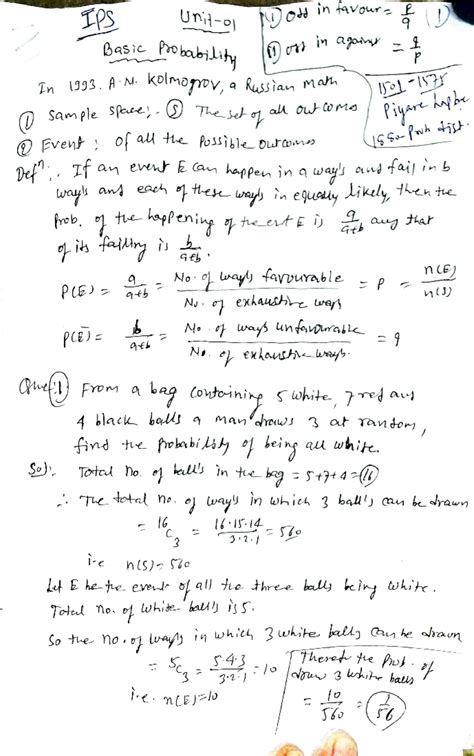 IPS
Unit-01
(i) odd in favour = p/q
(1)
(ii) odd in against = q/p
Basic Probability
In 1993. A.N. Kolmogrov, a Russian math
1501-1575
(1) Sample space:. (S) The set of all outcomes
(2) Event: of all the possible outcomes
Defn:. If an event E can happen in a way's and fail in b
way's and each of these ways in equally likely, then the
Prob. of the happening of the evnt E is a/a+b any that
of its failling is b/a+b.
P(E) = a/a+b = No. of way's favourable / No. of exhaustive ways = P = n(E)/n(S)
P(Ē) = b/a+b = No. of ways unfavourable / No. of exhaustive ways. = q
Que:(1) From a bag containing 5 white, 7 red and
4 black balls a man draws 3 at random,
find the probability of being all white.
Sol: Total no. of ball's in the bag = 5+7+4 = 16
∴ The total no. of way's in which 3 ball's can be drawn
= 16C3 = 16·15·14/3·2·1 = 560
i.e n(S) = 560
Let E be the event of all the three balls being white.
Total no. of white ball's is 5.
So the no. of ways in which 3 white balls can be drawn
= 5C3 = 5·4·3/3·2·1 = 10
i.e. n(E)=10
Therefo the Prob. of
draw 3 white balls
= 10/560 = 1/56